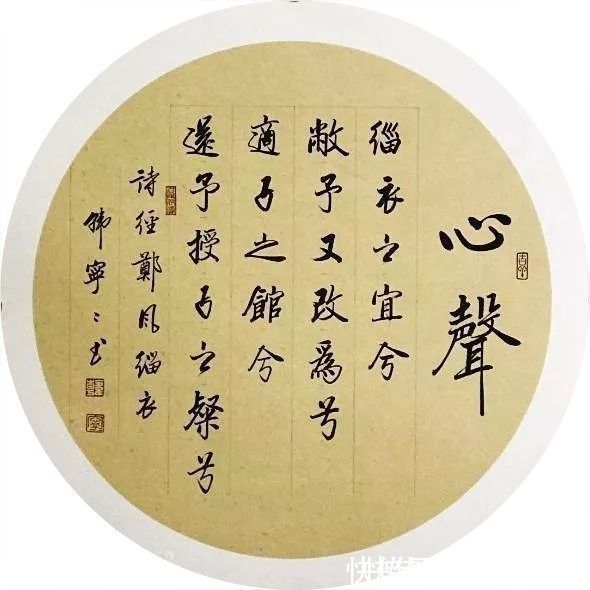 心聲
緇衣之宜兮
敝予又改爲兮
適子之館兮
還予授子之粲兮
詩經鄭風緇衣
韩寧〻书